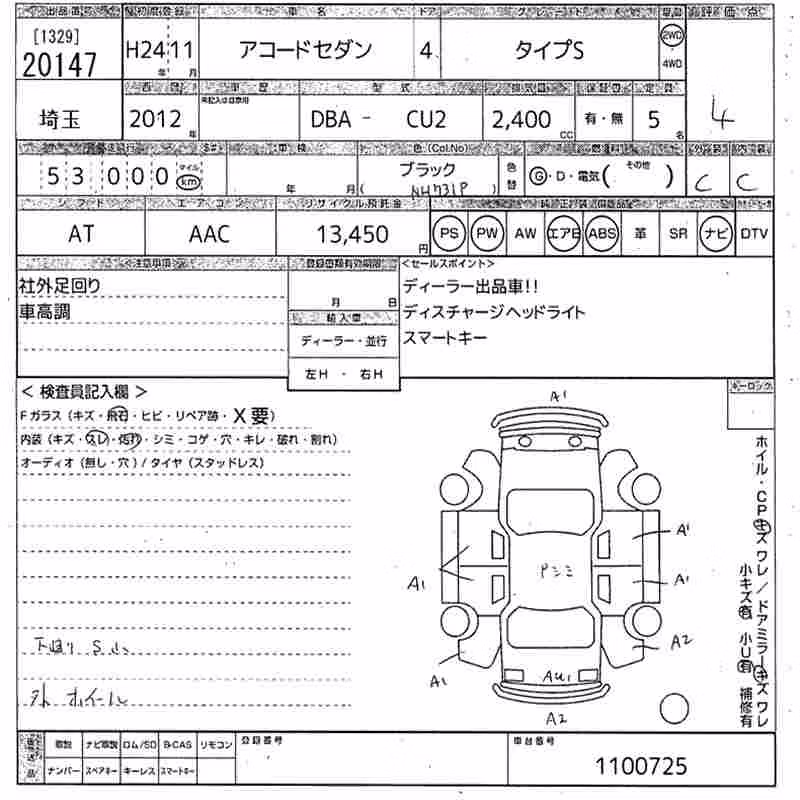 出品番号 初度登録 車名 ドア グレード 車両 評価点
[1329]
20147 H24 11 アコードセダン 4 タイプS 2WD
年 月 4WD
西暦 車歴 型式 排気量 保証書 定員
未記入は自家用
埼玉 2012 年 DBA - CU2 2,400 CC 有・無 5 名 4
車検 色(Col.No) 燃料 外装 内装
53,000 マイル km 年 月 ブラック 色替 G・D・電気( その他 ) C C
( NH731P )
シフト エアコン リサイクル預託金 純正装備
AT AAC 13,450 円 PS PW AW エアB ABS 革 SR ナビ DTV
<注意事項> 登録書類有効期限 <セールスポイント>
社外足回り ディーラー出品車!!
月 日
車高調 輸入車 ディスチャージヘッドライト
ディーラー・並行 スマートキー
左H ・ 右H
< 検査員記入欄 > キーロック
Fガラス (キズ・飛石・ヒビ・リペア跡・X要)
内装 (キズ・スレ・汚れ・シミ・コゲ・穴・キレ・破れ・割れ)
オーディオ (無し・穴) / タイヤ (スタッドレス)
A1
A1
Pシミ
A1 A1
A2
A1
AU1
A2
下廻り S小
外 ホイール
ホイル・CP キズ ワレ / ドアミラー キズ ワレ
小キズ 有 小U 有 補修有
取説 ナビ取説 ロム/SD B-CAS リモコン 登録番号 車台番号
ナンバー スペアキー キーレス スマートキー 1100725